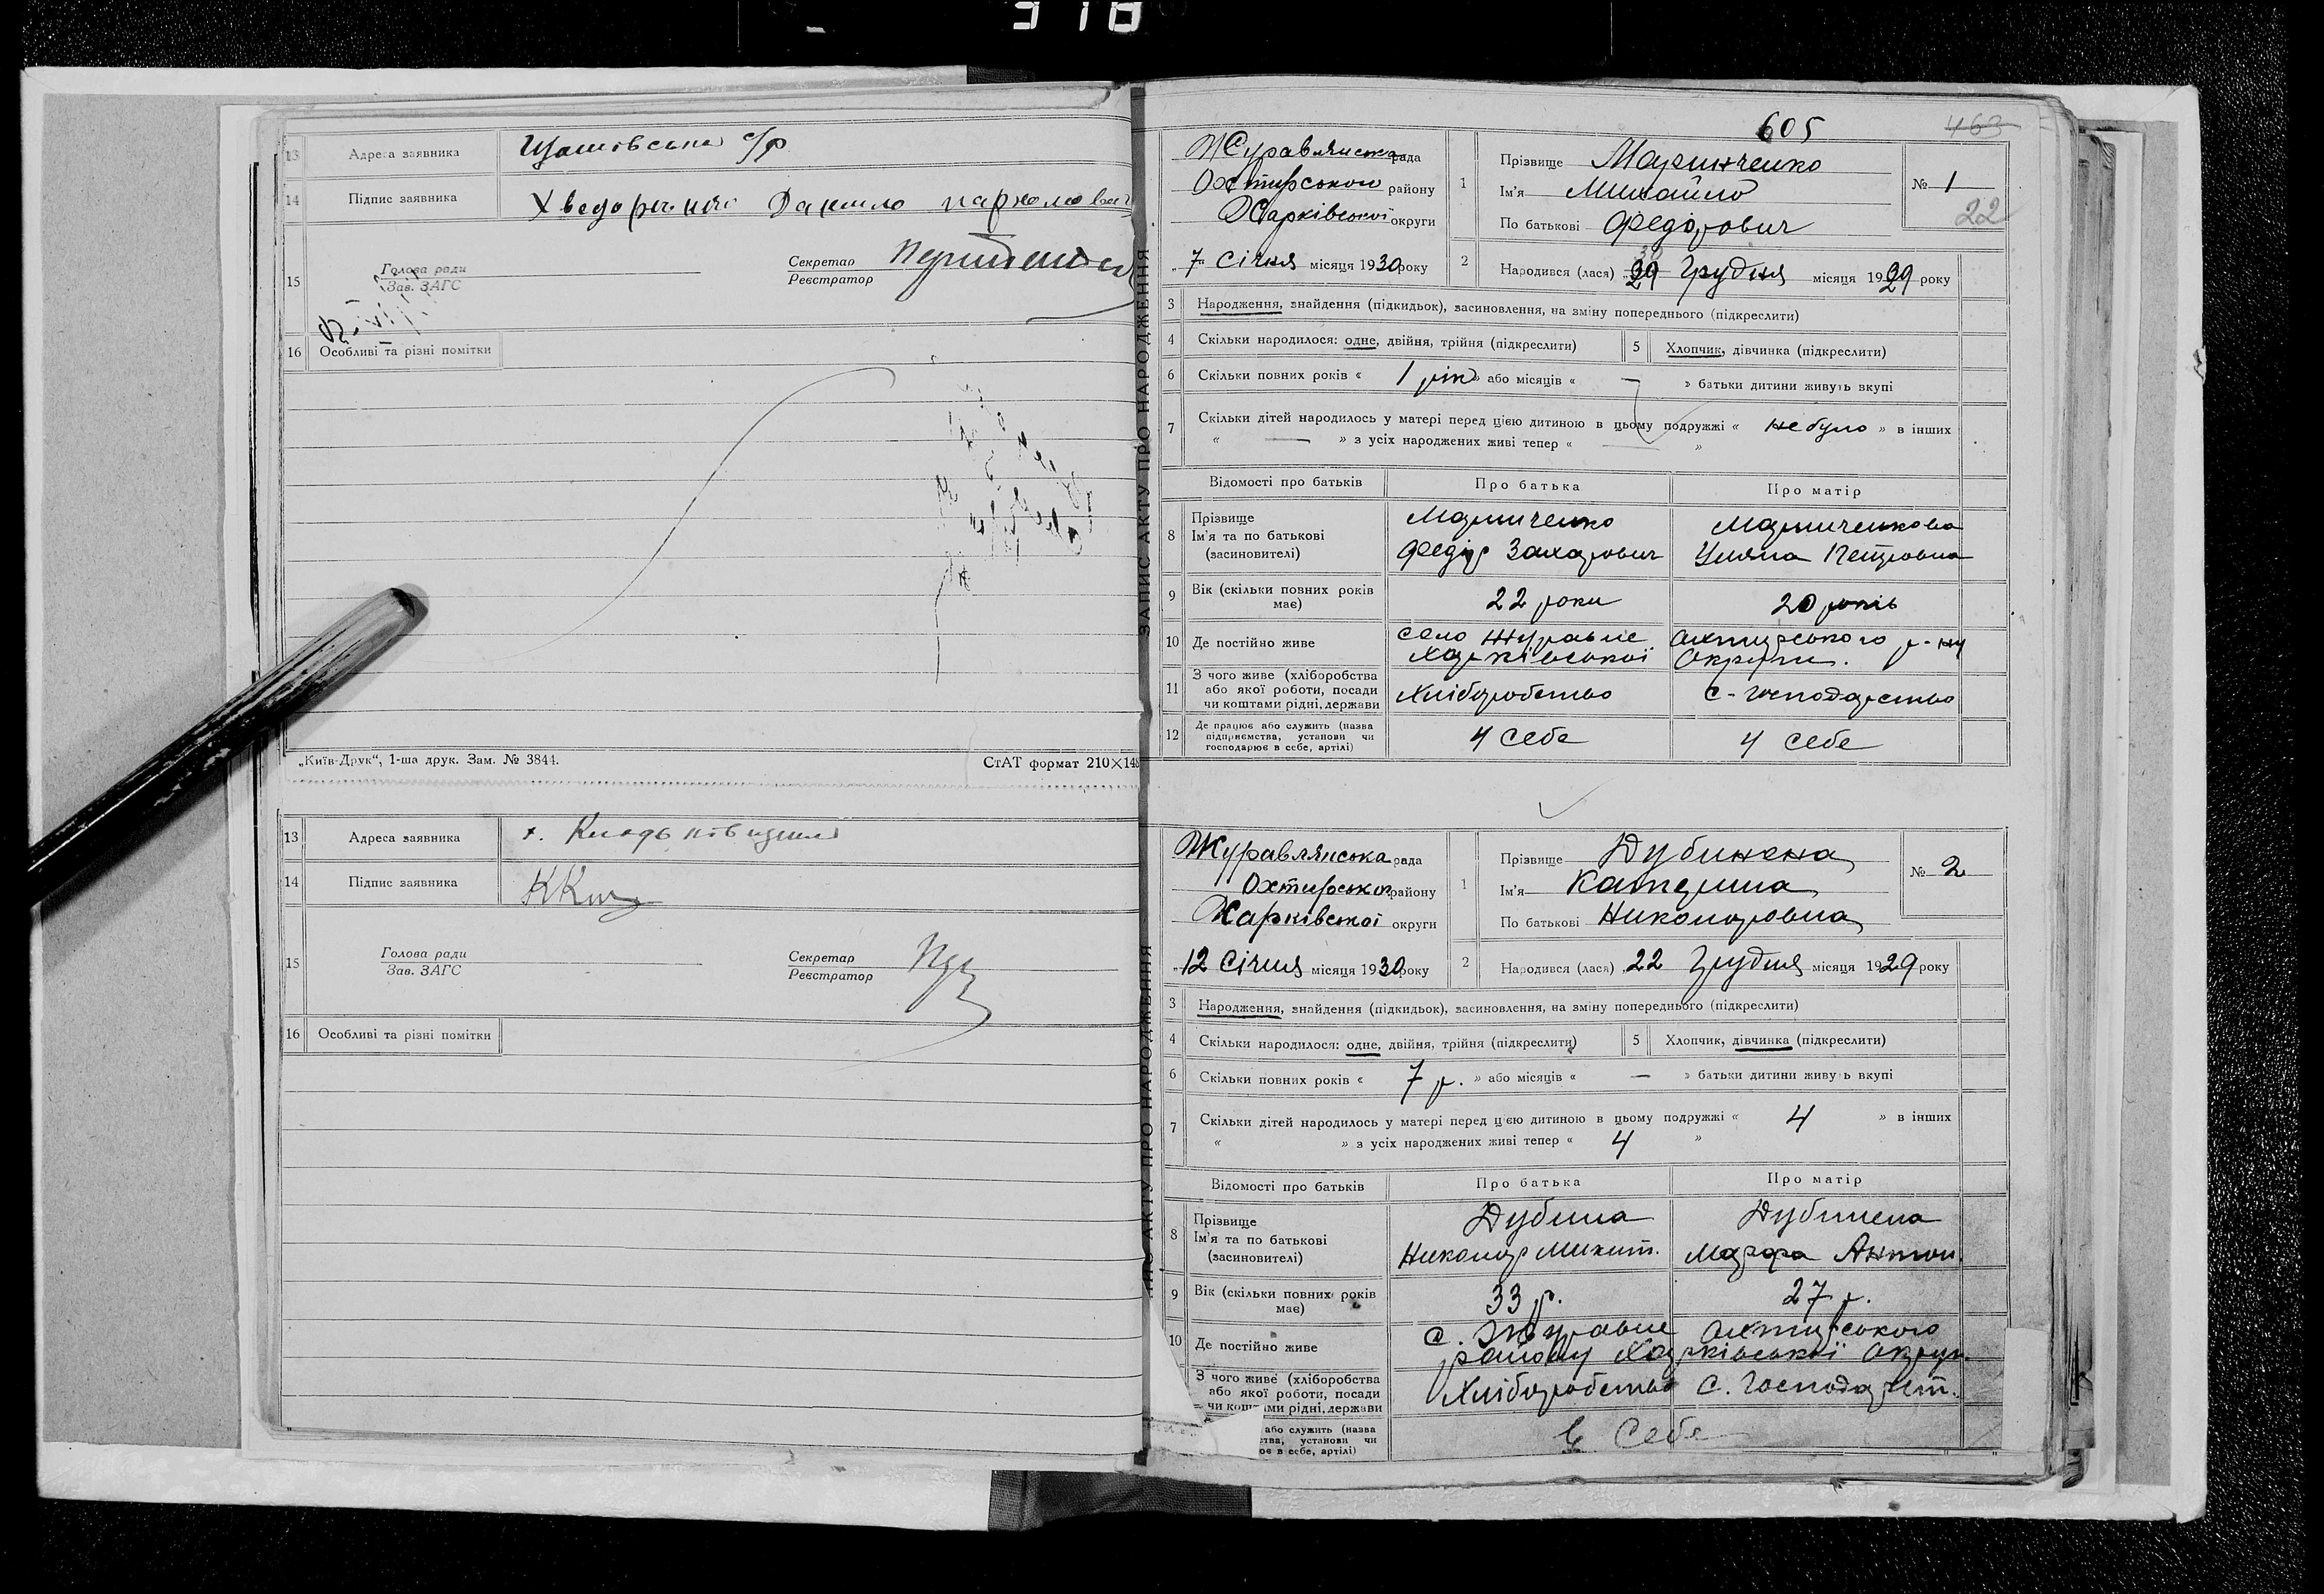 13 Адреса заявника
14 Підпис заявника Хведорченко Данило
15 Голова ради
Зав. ЗАГС
Секретар
Реєстратор
16 Особливі та різні помітки
„Київ-Друк“, 1-ша друк. Зам. № 3844.
СтАТ формат 210×148
13 Адреса заявника х.
14 Підпис заявника
15 Голова ради
Зав. ЗАГС
Секретар
Реєстратор
16 Особливі та різні помітки
ЗАПИС АКТУ ПРО НАРОДЖЕННЯ
605
463
Журавлянська рада
Охтирського району
Харківської округи
„7“ Січня місяця 1930 року
1 Прізвище Маринченко
Ім'я Михайло
По батькові Федорович
№ 1
22
2 Народився (лася) 29 Грудня місяця 1929 року
30
3 Народження, знайдення (підкидьок), засиновлення, на зміну попереднього (підкреслити)
4 Скільки народилося: одне, двійня, трійня (підкреслити)
5 Хлопчик, дівчинка (підкреслити)
6 Скільки повних років « 1 рік » або місяців « — » батьки дитини живуть вкупі
7 Скільки дітей народилось у матері перед цією дитиною в цьому подружжі « не було » в інших
« — » з усіх народжених живі тепер « — »
Відомості про батьків Про батька Про матір
8 Прізвище
Ім'я та по батькові
(засиновителі)
Маринченко
Федір Захарович
Маринченкова
Уляна Петровна
9 Вік (скільки повних років
має)
22 роки
20 років
10 Де постійно живе
село Журавне Охтирського р-ну
Харківської Округи.
11 З чого живе (хліборобства
або якої роботи, посади
чи коштами рідні, держави
Хліборобство
с-господарство
12 Де працює або служить (назва
підприємства, установи чи
господарює в себе, артілі)
У себе
У себе
Журавлянська рада
Охтирського району
Харківської округи
„12 Січня місяця 1930 року
1 Прізвище Дубинена
Ім'я Катерина
По батькові Никоноровна
№ 2
2 Народився (лася) 22 Грудня місяця 1929 року
3 Народження, знайдення (підкидьок), засиновлення, на зміну попереднього (підкреслити)
4 Скільки народилося: одне, двійня, трійня (підкреслити)
5 Хлопчик, дівчинка (підкреслити)
6 Скільки повних років « 7 р. » або місяців « — » батьки дитини живуть вкупі
7 Скільки дітей народилось у матері перед цією дитиною в цьому подружжі « 4 » в інших
« » з усіх народжених живі тепер « 4 »
Відомості про батьків Про батька Про матір
8 Прізвище
Ім'я та по батькові
(засиновителі)
Дубина
Никонор Микит.
Дубинена
Марфа Антон.
9 Вік (скільки повних років
має)
33 р.
27 р.
10 Де постійно живе
с. Журавне Охтирського
району Харківської Округи
З чого живе (хліборобства
або якої роботи, посади
чи коштами рідні, держави
Хліборобство
С. Господарст.
або служить (назва
установи чи
в себе, артілі)
В себе